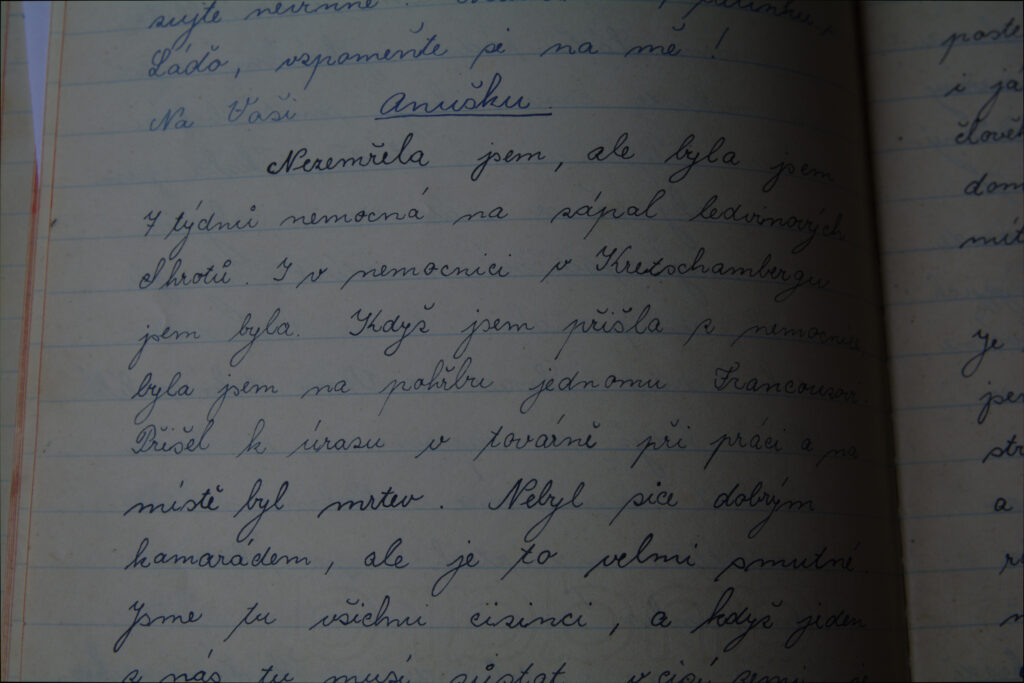 Láďo, vzpomeňte si na mě!
Na Vaši Anušku.
Nezemřela jsem, ale byla jsem
7 týdnů nemocná na zápal ledvinových
Shrotů. I v nemocnici v Kretschambergu
jsem byla. Když jsem přišla z nemocnice
byla jsem na pohřbu jednomu Francouzovi.
Přišel k úrazu v továrně při práci a na
místě byl mrtev. Nebyl sice dobrým
kamarádem, ale je to velmi smutné.
Jsme tu všichni cizinci, a když jeden
z nás tu musí zůstat
poste
i já
člověk
dom
mít
Je
jsem
str
a